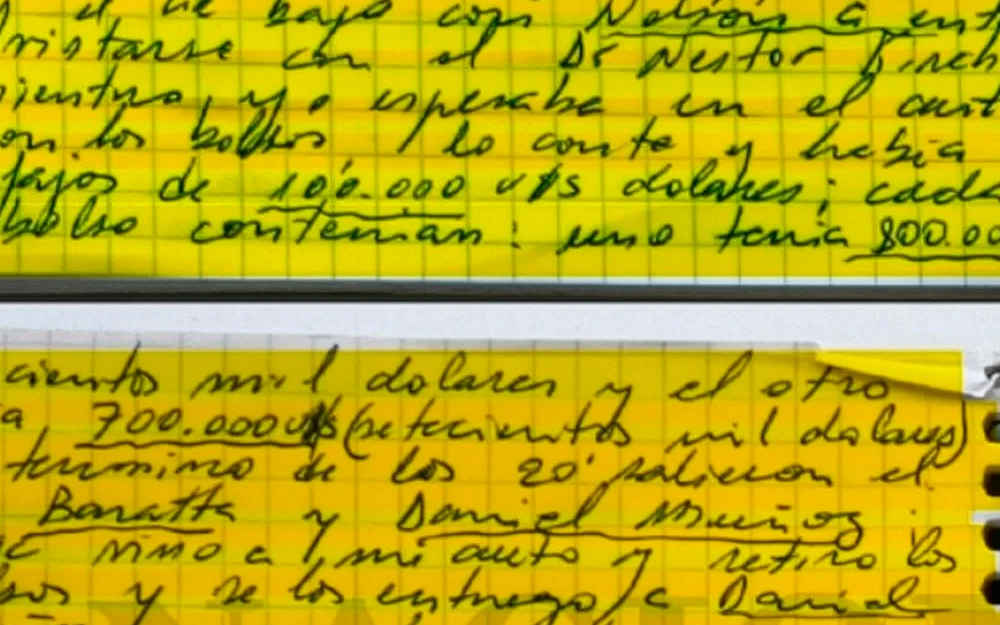 el de bajo con Nelson a ent
vistarse con el Dr Nestor
ientras, yo esperaba en el aut
on los bolsos / lo conte y habia
fajos de 100.000 u$s dolares; cada
bolso contenian: uno tenia 800.00
cientos mil dolares y el otro
a 700.000 u$s (setecientos mil dolares)
termino de los 20' salieron el
Baratta y Daniel Muñoz
vino a mi auto y retiro los
sos y se los entrego a Daniel